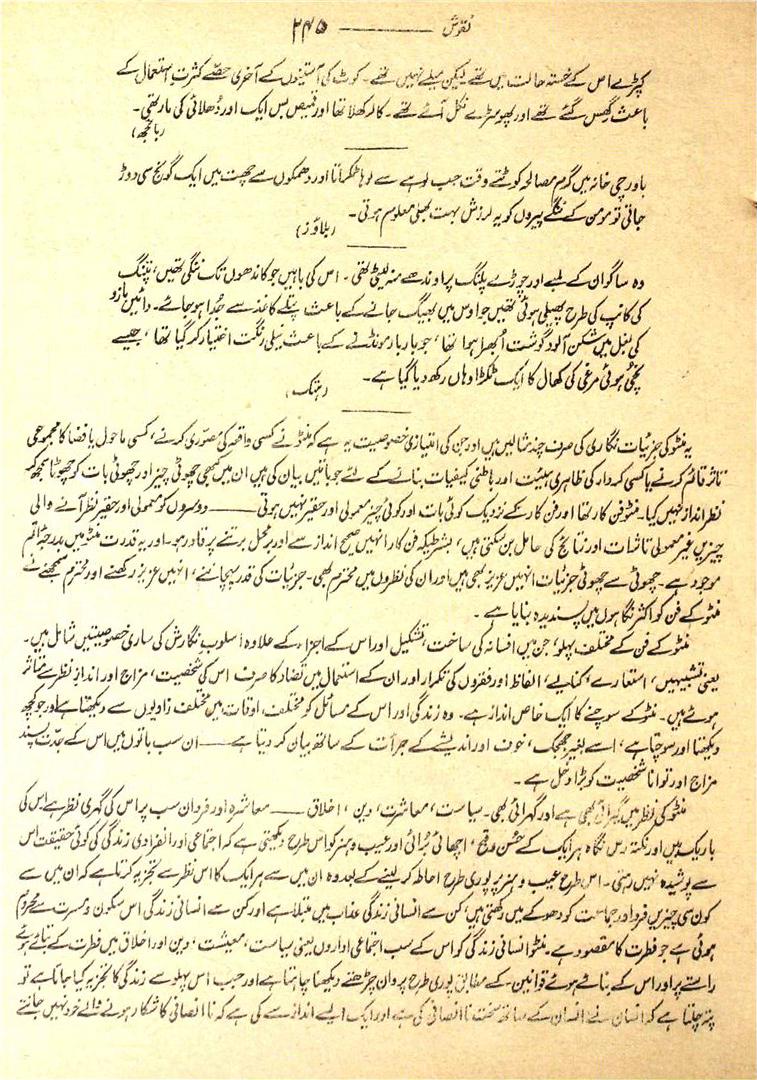 نقوش ——— ۲۴۵
کپڑے اس کے خستہ حالت میں تھے لیکن میلے نہیں تھے۔ کوٹ کی آستینوں کے آخری حصّے کثرتِ استعمال کے
باعث گھِس گئے تھے اور پھوسڑے نکل آئے تھے۔ کالر کھلا تھا اور قمیص بس ایک اور دُھلائی کی مار تھی۔
(بانجھ)
باورچی خانہ میں گرم مصالحہ کوٹتے وقت جب لوہے سے لوہا ٹکراتا اور دھمکوں سے چھت میں ایک گونج سی دوڑ
جاتی تو مومن کے ننگے پیروں کو یہ لرزش بہت بھلی معلوم ہوتی۔
(بلاؤز)
وہ ساگوان کے لمبے اور چوڑے پلنگ پر اوندھے منہ لیٹی تھی۔ اس کی باہیں جو کاندھوں تک ننگی تھیں، پتنگ
کی کانپ کی طرح پھیلی ہوئی تھیں جو اوس میں بھیگ جانے کے باعث پتلے کاغذ سے جُدا ہو جائے۔ دائیں بازو
کی بغل میں شکن آلود گوشت اُبھرا ہوا تھا، جو بار بار مونڈنے کے باعث نیلی رنگت اختیار کر گیا تھا، جیسے
نُچی ہوئی مرغی کی کھال کا ایک ٹکڑا وہاں رکھ دیا گیا ہے۔
(ہتک)
یہ منٹو کی جزئیات نگاری کی صرف چند مثالیں ہیں اور جن کی امتیازی خصوصیت یہ ہے کہ منٹو نے کسی واقعہ کی مصوّری کرنے، کسی ماحول یا فضا کا مجموعی
تاثر قائم کرنے یا کسی کردار کی ظاہری ہیئت اور باطنی کیفیات بنانے کے لئے جو باتیں بیان کی ہیں ان میں کبھی چھوٹی چیز اور چھوٹی بات کو چھوٹا سمجھ کر
نظر انداز نہیں کیا۔ منٹو فن کار تھا اور فن کار کے نزدیک کوئی بات اور کوئی چیز معمولی اور حقیر نہیں ہوتی —— دوسروں کو معمولی اور حقیر نظر آنے والی
چیزیں غیر معمولی تاثرات اور نتائج کی حامل بن سکتی ہیں، بشرطیکہ فن کار انہیں صحیح انداز سے اور بر محل برتنے پر قادر ہو۔ اور یہ قدرت منٹو میں بدرجۂ اتم
موجود ہے۔ چھوٹی سے چھوٹی جزئیات انہیں عزیز بھی ہیں اور ان کی نظروں میں محترم بھی۔ جزئیات کی قدر پہچاننے، انہیں عزیز رکھنے اور محترم سمجھنے نے
منٹو کے فن کو اکثر نگاہوں میں پسندیدہ بنایا ہے۔
منٹو کے فن کے مختلف پہلو، جن میں افسانہ کی ساخت، تشکیل اور اس کے اجزاء کے علاوہ اسلوبِ نگارش کی ساری خصوصیتیں شامل ہیں۔
یعنی تشبیہیں، استعارے، کنایے، الفاظ اور فقروں کی تکرار اور ان کے استعمال میں تضاد کا صرف اس کی شخصیت، مزاج اور اندازِ نظر سے متاثر
ہوئے ہیں۔ منٹو کے سوچنے کا ایک خاص انداز ہے۔ وہ زندگی اور اس کے مسائل کو مختلف اوقات میں مختلف زاویوں سے دیکھتا ہے اور جو کچھ
دیکھتا اور سوچتا ہے، اسے بغیر جھجک، خوف اور اندیشے کے جرأت کے ساتھ بیان کر دیتا ہے —— ان سب باتوں میں اس کے جدّت پسند
مزاج اور توانا شخصیت کو بڑا دخل ہے۔
منٹو کی نظر میں گیرائی بھی ہے اور گہرائی بھی۔ سیاست، معاشرت، دین، اخلاق —— معاشرہ اور فرد ان سب پر اس کی گہری نظر ہے اس کی
باریک بیں اور نکتہ رس نگاہ ہر ایک کے حُسن و قبح، اچھائی بُرائی اور عیب و ہنر کو اس طرح دیکھتی ہے کہ اجتماعی اور انفرادی زندگی کی کوئی حقیقت اس
سے پوشیدہ نہیں رہتی۔ اس طرح عیب و ہنر پر پوری طرح احاطہ کر لینے کے بعد وہ ان میں سے ہر ایک کا اس نظر سے تجزیہ کرتا ہے کہ ان میں سے
کون سی چیزیں فرد اور جماعت کو دھوکے میں رکھتی ہیں، کن سے انسانی زندگی عذاب میں مبتلا ہے اور کن سے انسانی زندگی اس سکون و مسرت سے محروم
ہوئی ہے جو فطرت کا مقصود ہے۔ منٹو انسانی زندگی کو اس کے سب اجتماعی اداروں یعنی سیاست، معیشت، دین اور اخلاق میں فطرت کے بتائے ہوئے
راستے پر اور اس کے بنائے ہوئے قوانین کے مطابق پوری طرح پروان چڑھتے دیکھنا چاہتا ہے اور جب اس پہلو سے زندگی کا تجزیہ کیا جاتا ہے تو
پتہ چلتا ہے کہ انسان نے انسان کے ساتھ سخت ناانصافی کی ہے اور ایک ایسے انداز سے کی ہے کہ ناانصافی کا شکار ہونے والے خود نہیں جانتے